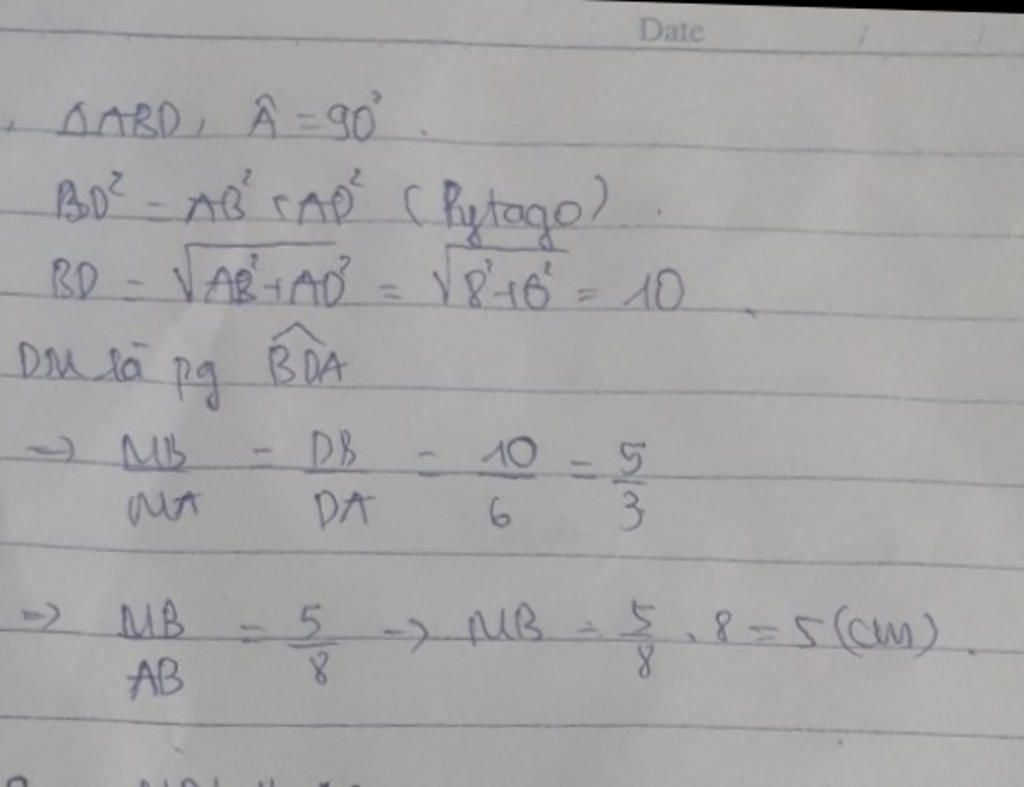 Date / /
ΔABD, Â = 90°.
BD² = AB² + AD² (Pytago).
BD = √(AB² + AD²) = √(8² + 6²) = 10
DM là pg \widehat{BDA}
→ MB/MA = DB/DA = 10/6 = 5/3
→ MB/AB = 5/8 → MB = 5/8 . 8 = 5 (cm).